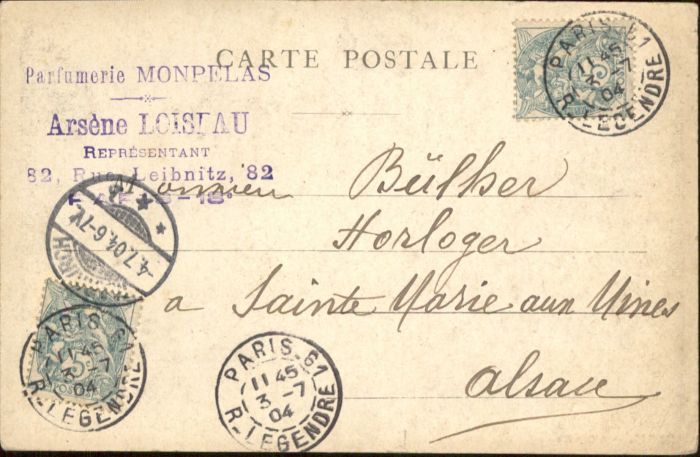 CARTE POSTALE
Parfumerie MONPELAS
Arsène LOISEAU
REPRÉSENTANT
82, Rue Leibnitz, 82
PARIS-18e
Monsieur Bülher
Horloger
a Sainte Marie aux Mines
Alsace
PARIS 61
11 45
3 -7
04
R. LEGENDRE
4.7.04.6-7V.
KIRCH
PARIS 61
11 45
3 -7
04
R. LEGENDRE
PARIS 61
11 45
3 -7
04
R. LEGENDRE